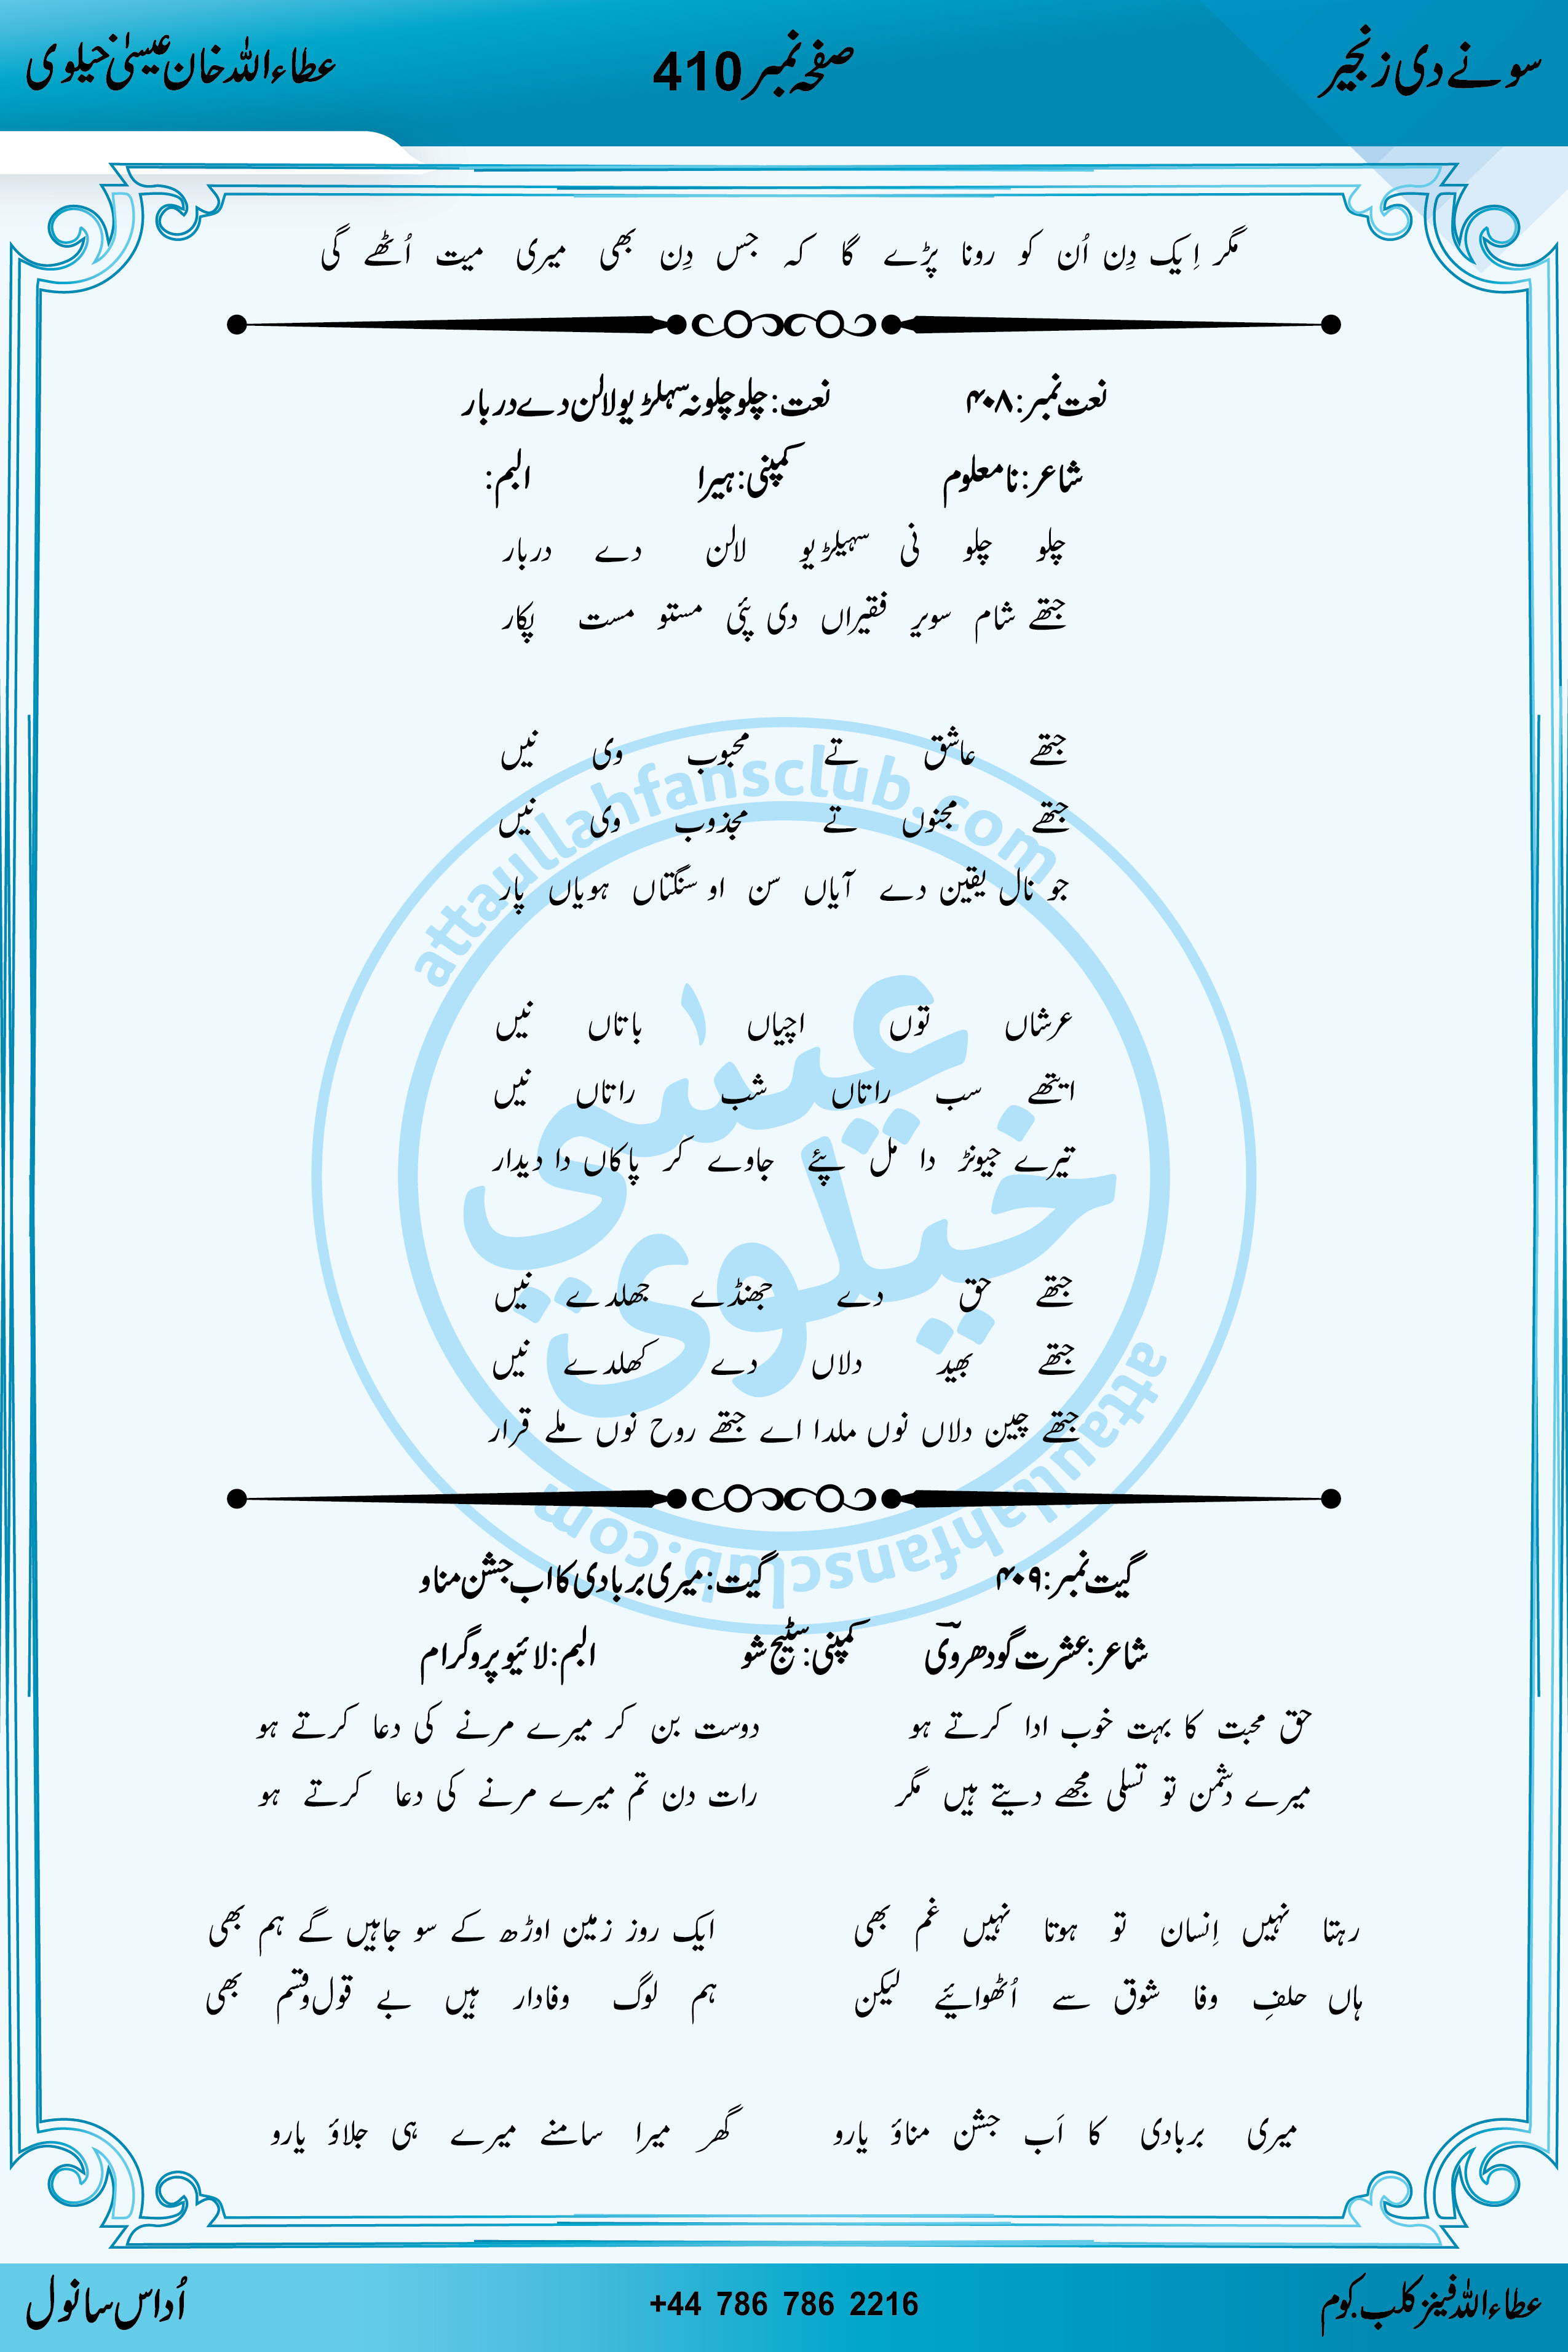 سونے دی زنجیر صفحہ نمبر 410 عطاءاللہ خان عیسیٰ خیلوی
مگر اِیک دِن اُن کو رونا پڑے گا کہ جس دِن بھی میری میت اُٹھے گی
نعت نمبر: ۴۰۸ نعت: چلو چلو نہ سہلڑیو لالن دے دربار
شاعر: نامعلوم کمپنی: ہیرا البم:
چلو چلو نی سہیلڑیو لالن دے دربار
جتھے شام سویر فقیراں دی پئی مستو مست پکار
جتھے عاشق تے محبوب وی نیں
جتھے مجنوں تے مجذوب وی نیں
جو نال یقین دے آیاں سن او سنگتاں ہویاں پار
عرشاں توں اچیاں باتاں نیں
ایتھے سب راتاں شب راتاں نیں
تیرے جیونڑ دا مل پئے جاوے کر پاکاں دا دیدار
جتھے حق دے جھنڈے جھلدے نیں
جتھے بھید دلاں دے کھلدے نیں
جتھے چین دلاں نوں ملدا اے جتھے روح نوں ملے قرار
گیت نمبر: ۴۰۹ گیت: میری بربادی کا اب جشن مناو
شاعر: عشرت گودھرویؔ کمپنی: سٹیج شو البم: لائیو پروگرام
حق محبت کا بہت خوب ادا کرتے ہو دوست بن کر میرے مرنے کی دعا کرتے ہو
میرے دشمن تو تسلی مجھے دیتے ہیں مگر رات دن تم میرے مرنے کی دعا کرتے ہو
رہتا نہیں اِنسان تو ہوتا نہیں غم بھی ایک روز زمین اوڑھ کے سو جاہیں گے ہم بھی
ہاں حلفِ وفا شوق سے اُٹھوائیے لیکن ہم لوگ وفادار ہیں بے قول وقسم بھی
میری بربادی کا اَب جشن مناؤ یارو گھر میرا سامنے میرے ہی جلاؤ یارو
عطاءاللہ فینز کلب.کوم +44 786 786 2216 اُداس سانول
attaullahfansclub.com
عیسٰی
خیلوی
attaullahfansclub.com